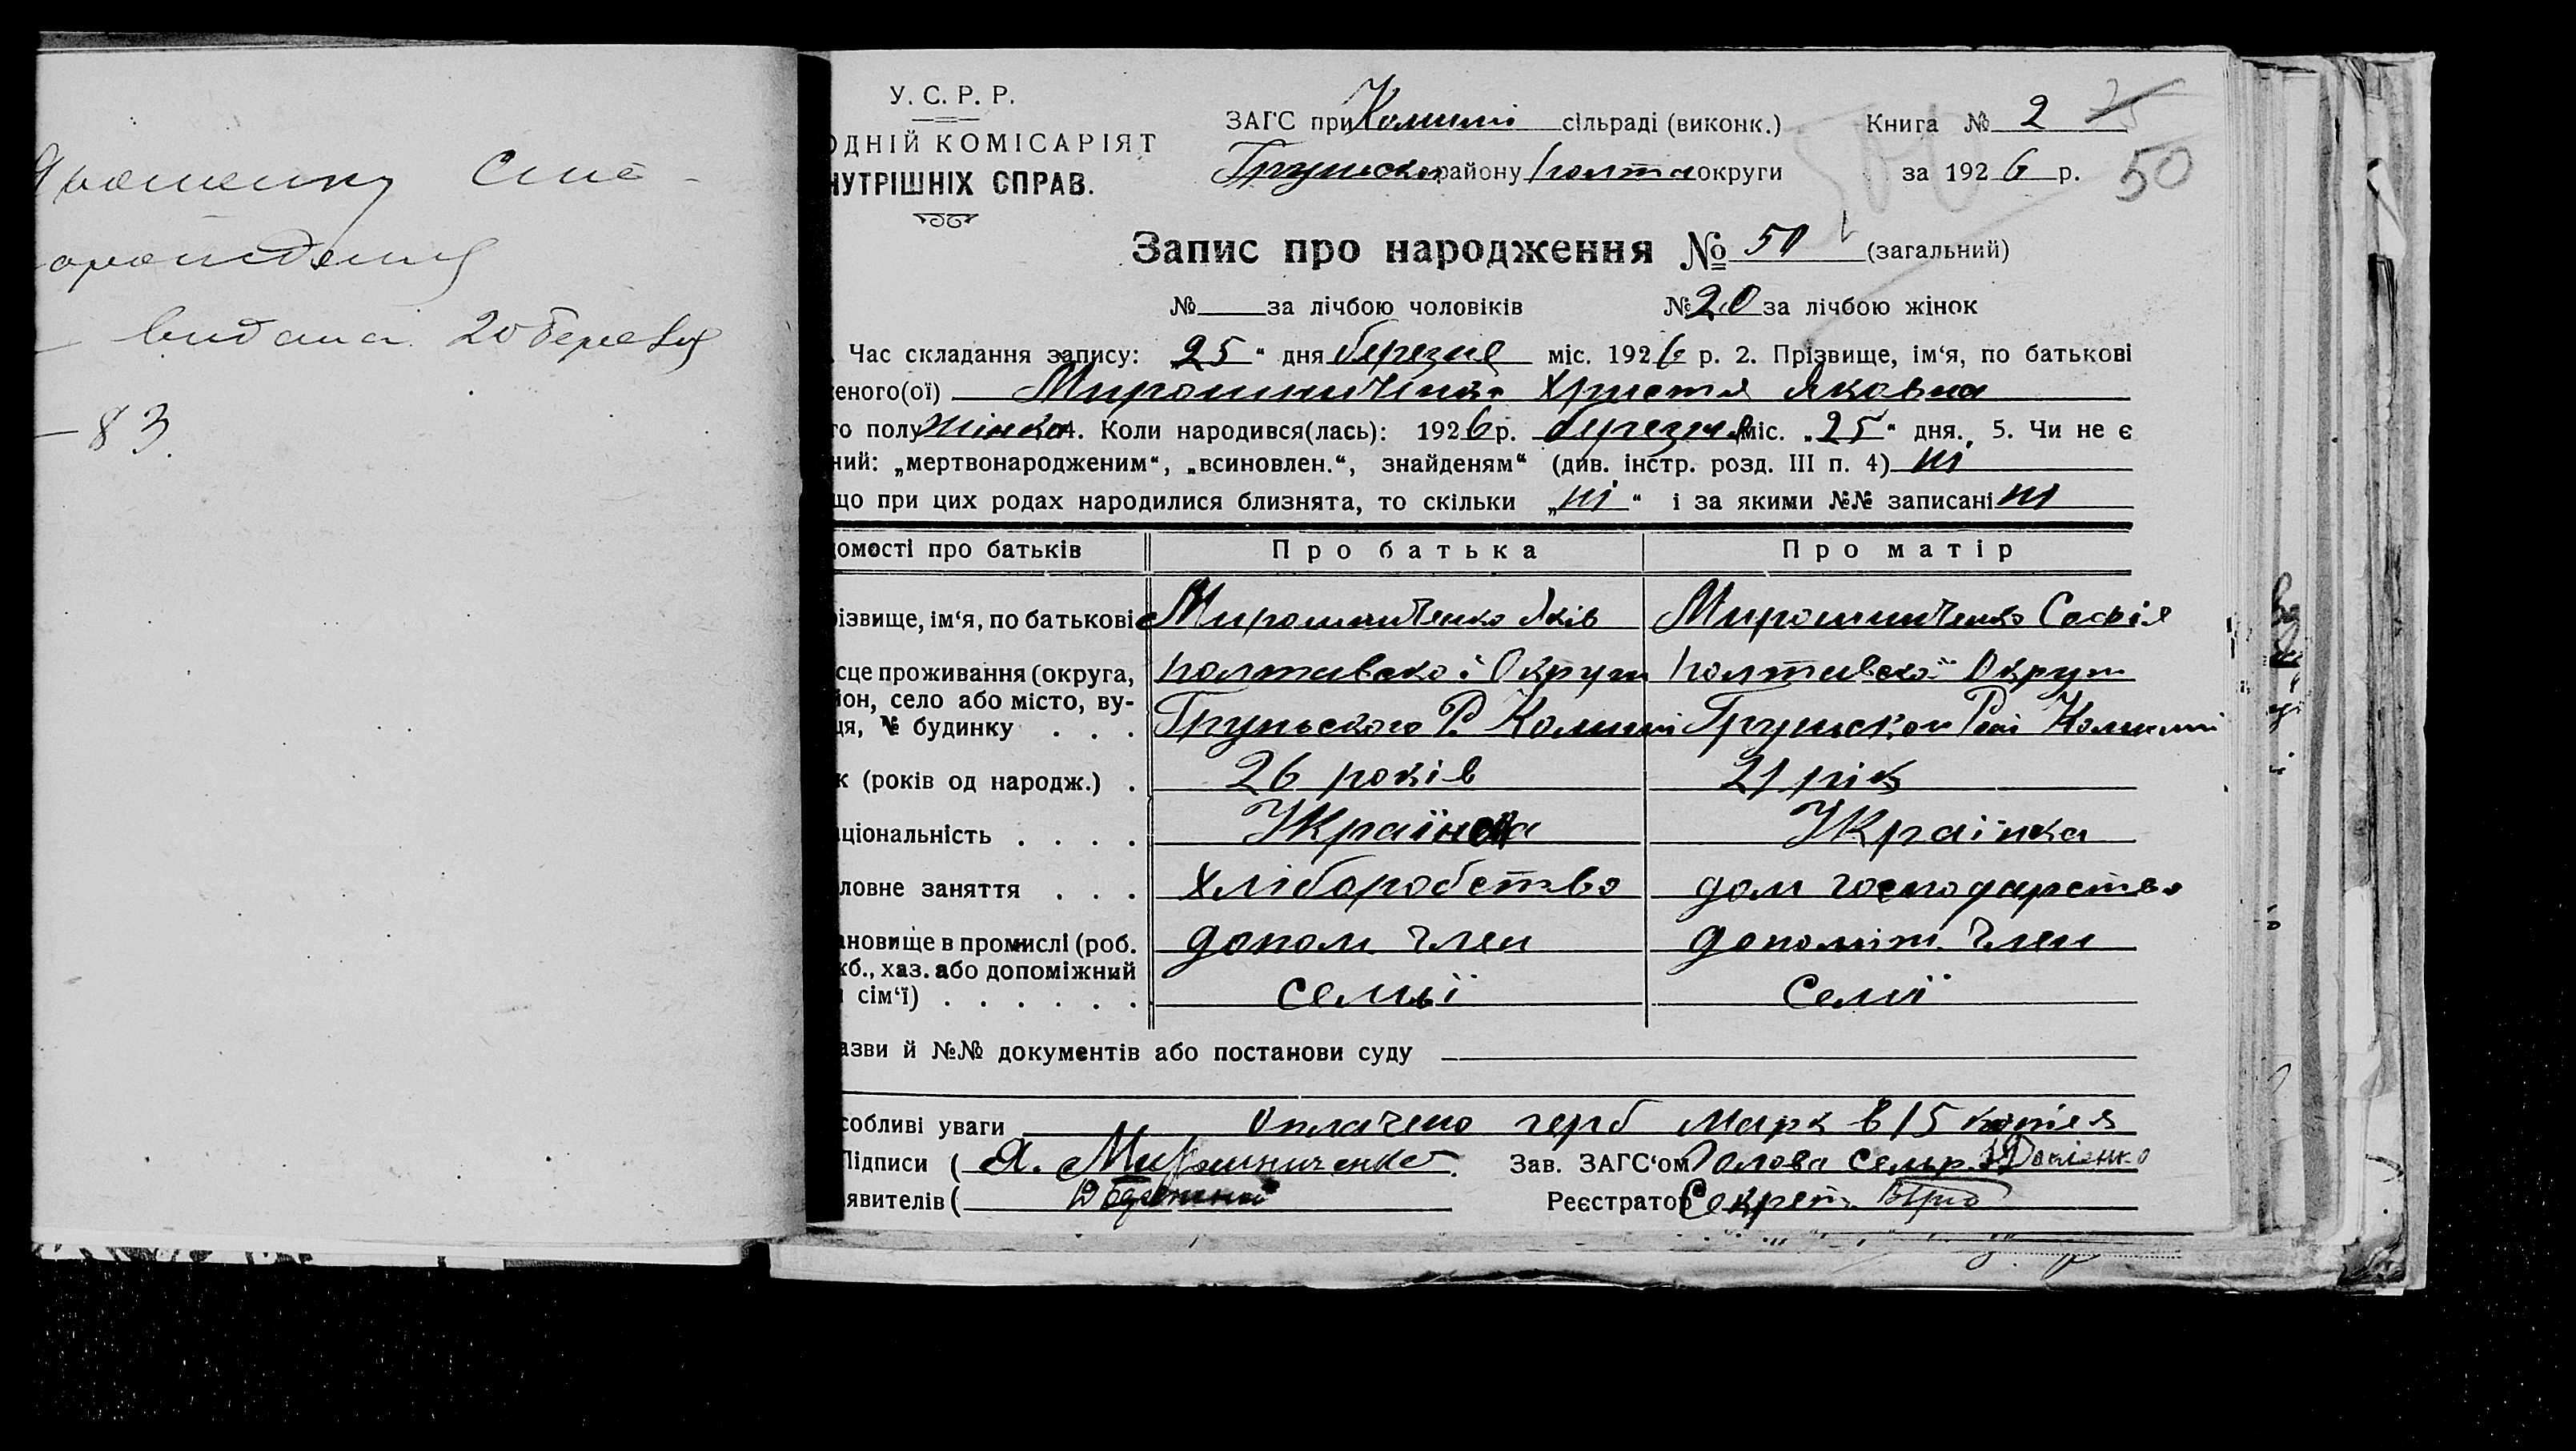 видана 20 березня
– 83.
У. С. Р. Р.
ОДНІЙ КОМІСАРІЯТ
НУТРІШНІХ СПРАВ.
ЗАГС при Комиші сільраді (виконк.)
Грунського району Полтав округи
Книга № 2 75
за 1926 р. 50
Запис про народження № 50 (загальний)
№ за лічбою чоловіків № 20 за лічбою жінок
. Час складання запису: 25 " дня березня міс. 1926 р. 2. Прізвище, ім'я, по батькові
еного(ої) Мирошниченко Христя Яковна
го полу жінка 4. Коли народився(лась): 1926 р. березня міс. „25" дня. 5. Чи не є
ний: „мертвонародженим", „всиновлен.", знайденям" (див. інстр. розд. III п. 4) ні
що при цих родах народилися близнята, то скільки „ні" і за якими №№ записані ні
домості про батьків Про батька Про матір
ізвище, ім'я, по батькові Мирошниченко Яків Мирошниченко Софія
сце проживання (округа, Полтавскоі Округи Полтавскоі Округи
йон, село або місто, ву-
ця, № будинку . . . Грунського Р. Комиші Грунского Рай Комиші
к (років од народж.) . 26 років 21 рік
аціональність . . . . Українка
ловне заняття . . . Хліборобство дом господарство
ановище в промислі (роб. допом член допоміж. член
жб., хаз. або допоміжний
сім'ї) . . . . . . семьї Семї
азви й №№ документів або постанови суду
собливі уваги Оплачено герб марк в 15 копіє
Підписи ( Я. Мирошниченко Зав. ЗАГС'ом Голова сельр.
явителів ( Реєстратор Секрет.